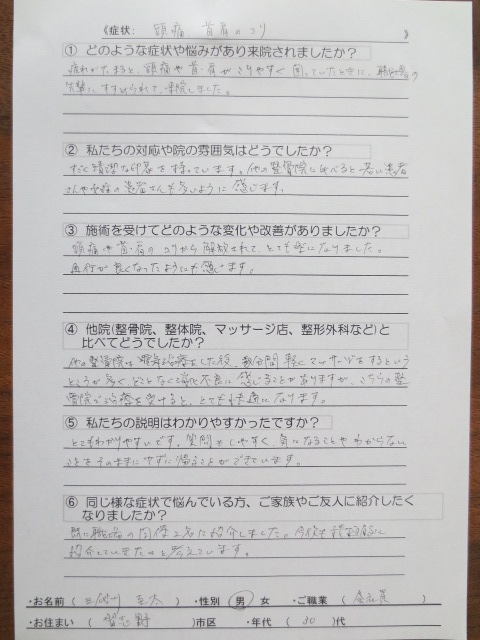 《症状: 頭痛 首肩のコリ 》
① どのような症状や悩みがあり来院されましたか？
疲れがたまると、頭痛や首・肩がこりやすく困っていたときに、職場の
先輩にすすめられて、来院しました。
② 私たちの対応や院の雰囲気はどうでしたか？
すごく清潔な印象を持っています。他の整骨院に比べると若い患者
さんや女性の患者さんも多いように感じます。
③ 施術を受けてどのような変化や改善がありましたか？
頭痛や首・肩のコリから解放されて、とても楽になりました。
血行が良くなったようにも感じます。
④ 他院(整骨院、整体院、マッサージ店、整形外科など)と
比べてどうでしたか？
他の整骨院は電気治療をした後、数分間軽くマッサージをするという
ところが多く、どことなく消化不良に感じることがありますが、こちらの整
骨院で治療を受けると、とても快適になります。
⑤ 私たちの説明はわかりやすかったですか？
とてもわかりやすいです。質問もしやすく、気になることやわからない
ことをそのままにせずに帰ることができています。
⑥ 同じ様な症状で悩んでいる方、ご家族やご友人に紹介したく
なりましたか？
既に職場の同僚2名に紹介しました。今後も積極的に
紹介していきたいと考えています。
・お名前 ( ) ・性別 男 女 ・ご職業 ( 会社員 )
・お住まい ( 習志野 ) 市区 ・年代 ( 30 ) 代